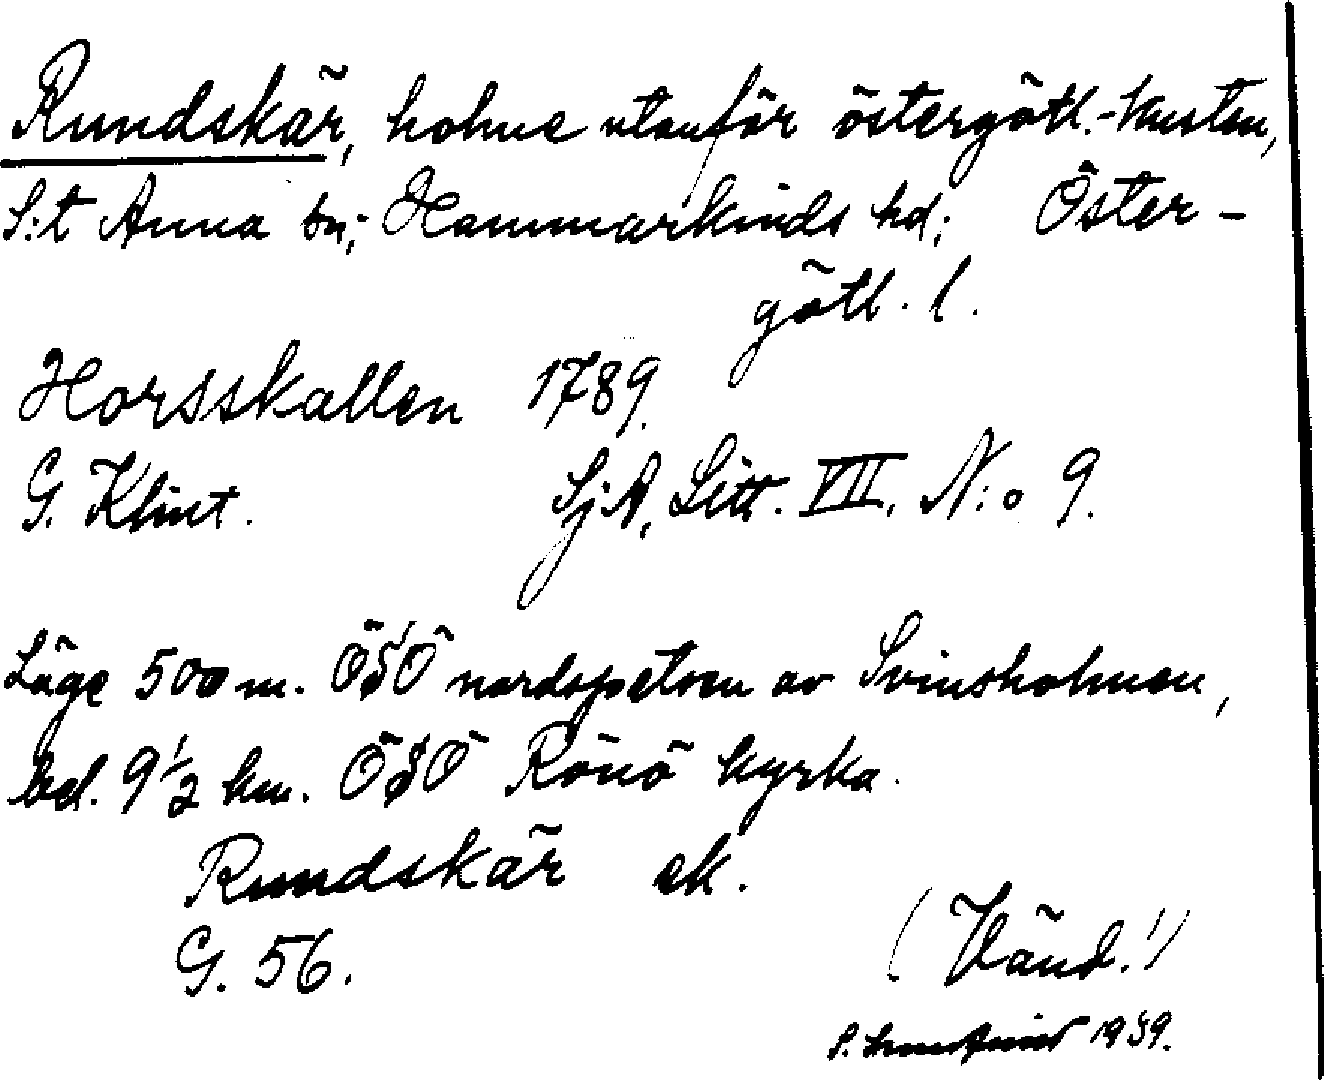 Rundskär, holme utanför östergötl.-kusten,
S:t Anna sn; Hammarkinds hd; Öster-
götl. l.
Horsskallen 1789.
G. Klint. SjA, Litt. VII, N:o 9.
Läge 500 m. ÖSÖ nordspetsen av Svinsholmen,
bel. 9 1/2 km. ÖSÖ Rönö kyrka.
Rundskär ek.
G. 56.
(Vänd!)
S. 1939.